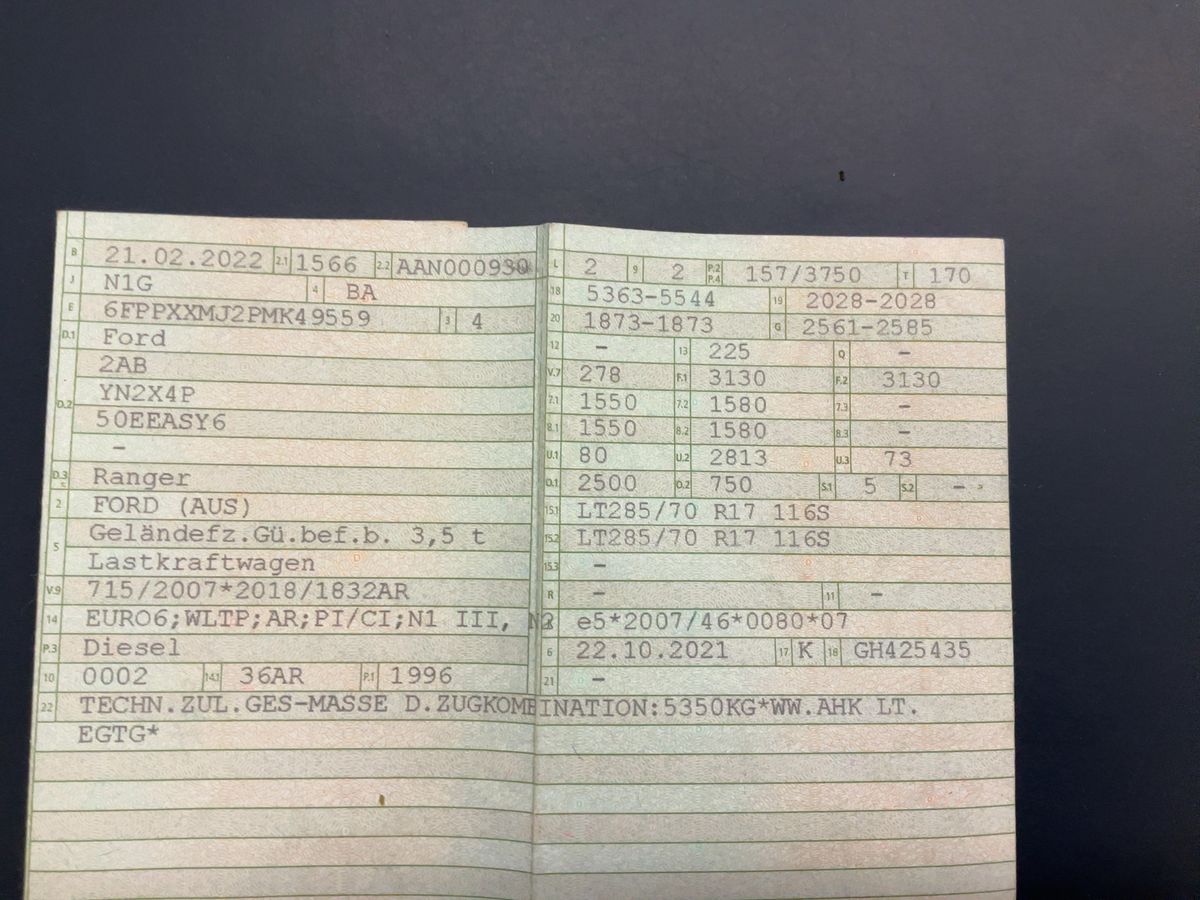 B 21.02.2022 2.1 1566 2.2 AAN000930
J N1G 4 BA
E 6FPPXXMJ2PMK49559 3 4
D.1 Ford
2AB
D.2 YN2X4P
50EEASY6
-
D.3 Ranger
2 FORD (AUS)
5 Geländefz.Gü.bef.b. 3,5 t
Lastkraftwagen
V.9 715/2007*2018/1832AR
14 EURO6;WLTP;AR;PI/CI;N1 III, N2
P.3 Diesel
10 0002 14.1 36AR P.1 1996
L 2 9 2 P.2 P.4 157/3750 T 170
18 5363-5544 19 2028-2028
20 1873-1873 G 2561-2585
12 - 13 225 Q -
V.7 278 F.1 3130 F.2 3130
7.1 1550 7.2 1580 7.3 -
8.1 1550 8.2 1580 8.3 -
U.1 80 U.2 2813 U.3 73
O.1 2500 O.2 750 S.1 5 S.2 -
15.1 LT285/70 R17 116S
15.2 LT285/70 R17 116S
15.3 -
R - 11 -
e5*2007/46*0080*07
6 22.10.2021 17 K 18 GH425435
21 -
22 TECHN.ZUL.GES-MASSE D.ZUGKOMBINATION:5350KG*WW.AHK LT.
EGTG*